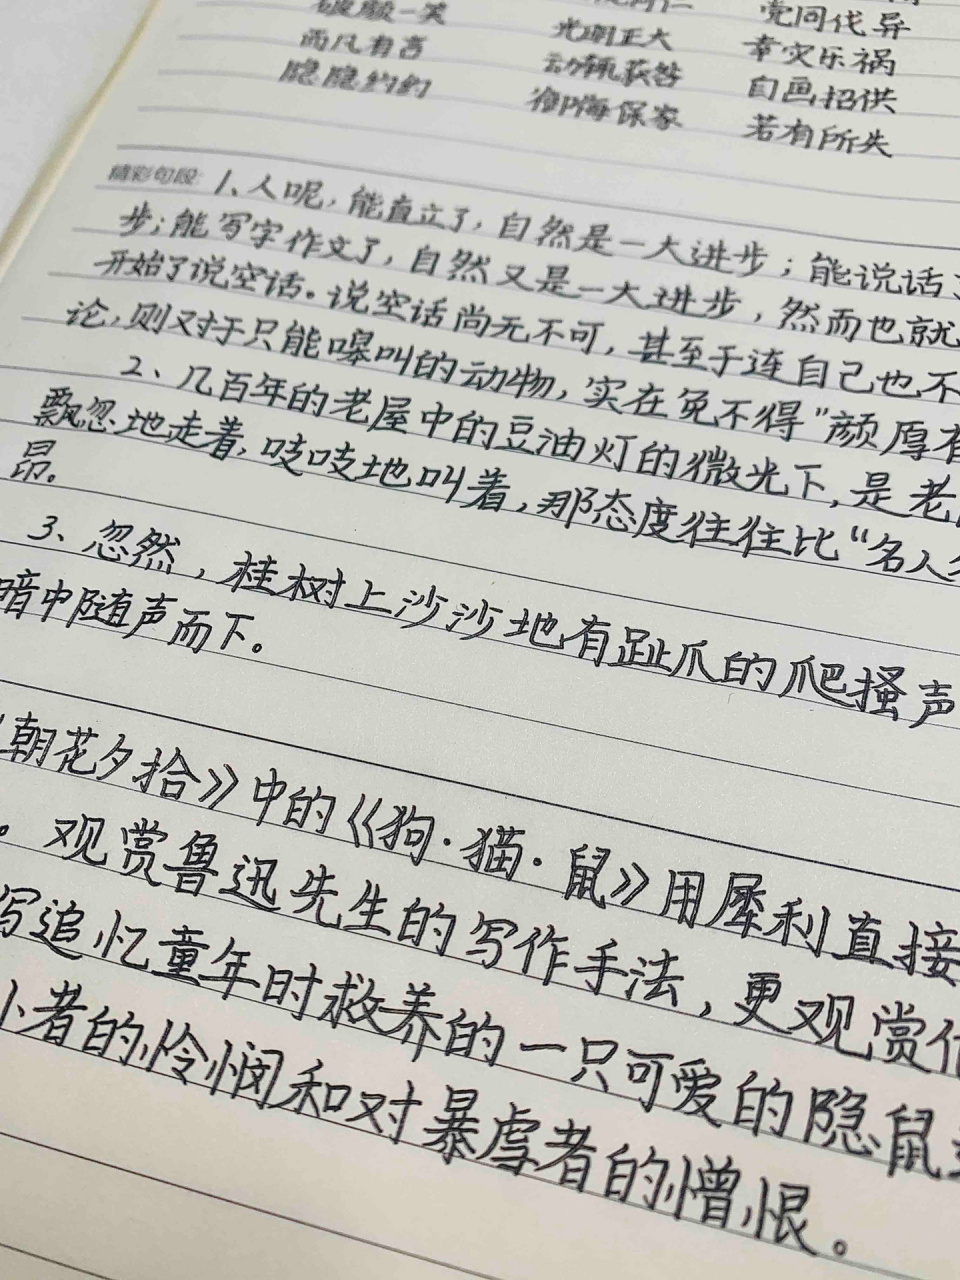 一笑 党同伐异
雨风有言 光明正大 幸灾乐祸
隐隐约约 动辄获咎 自画招供
保家 若有所失
精彩句段: 1、人呢,能直立了,自然是一大进步;能说话了
步;能写字作文了,自然又是一大进步,然而也就
开始了说空话。说空话尚无不可,甚至于连自己也不
论,则对于只能嗥叫的动物,实在免不得"颜厚有
2、几百年的老屋中的豆油灯的微光下,是老
飘忽地走着,吱吱地叫着,那态度往往比"名人
昂。
3、忽然,桂树上沙沙地有趾爪的爬搔声
暗中随声而下。
《朝花夕拾》中的《狗·猫·鼠》用犀利直接
。观赏鲁迅先生的写作手法,更观赏
写追忆童年时救养的一只可爱的隐鼠
小者的怜悯和对暴虐者的憎恨。